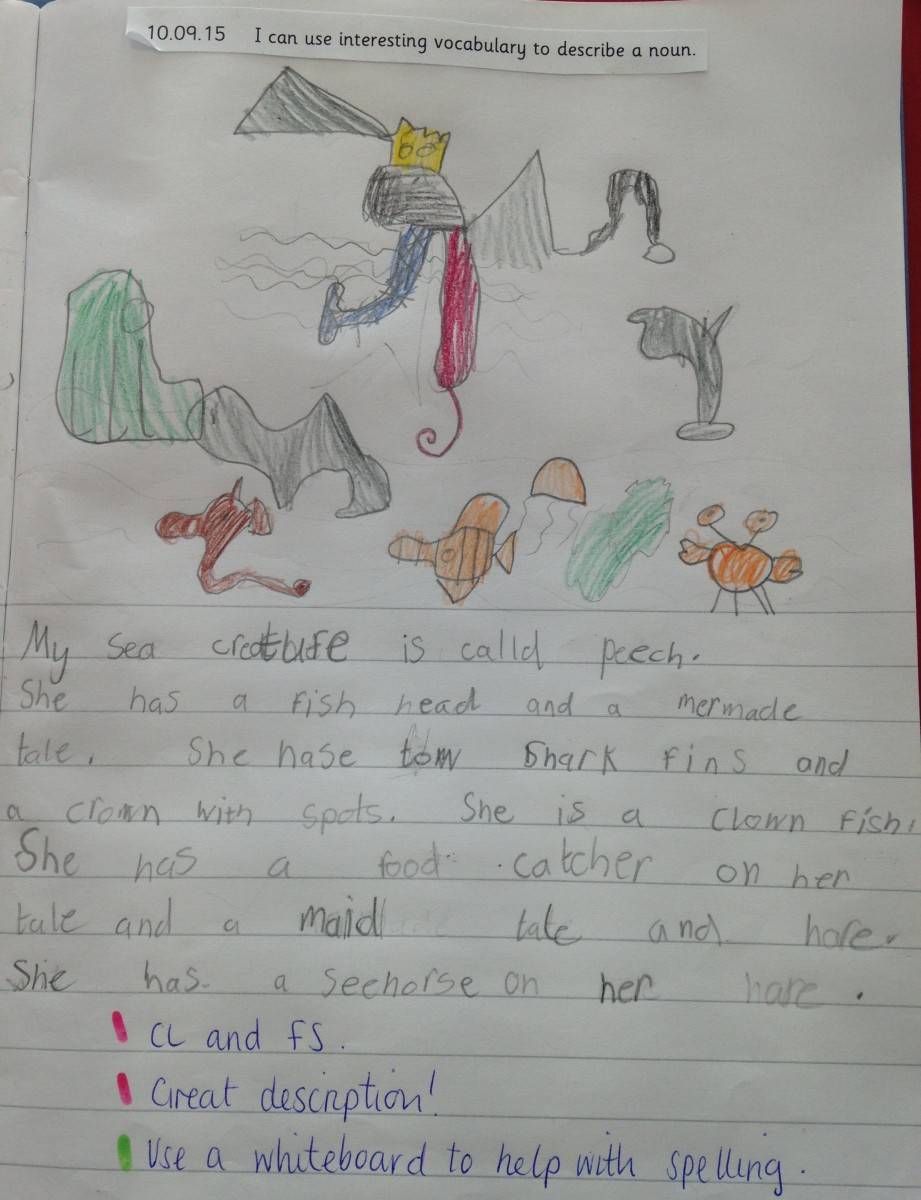 10.09.15 I can use interesting vocabulary to describe a noun.
My sea creature is calld peech.
She has a fish head and a mermade
tale. She hase tow Shark fins and
a crown with spots. She is a clown fish.
She has a food catcher on her
tale and a maid tale and hare.
She has a seehorse on her hare.
CL and FS.
Great description!
Use a whiteboard to help with spelling.